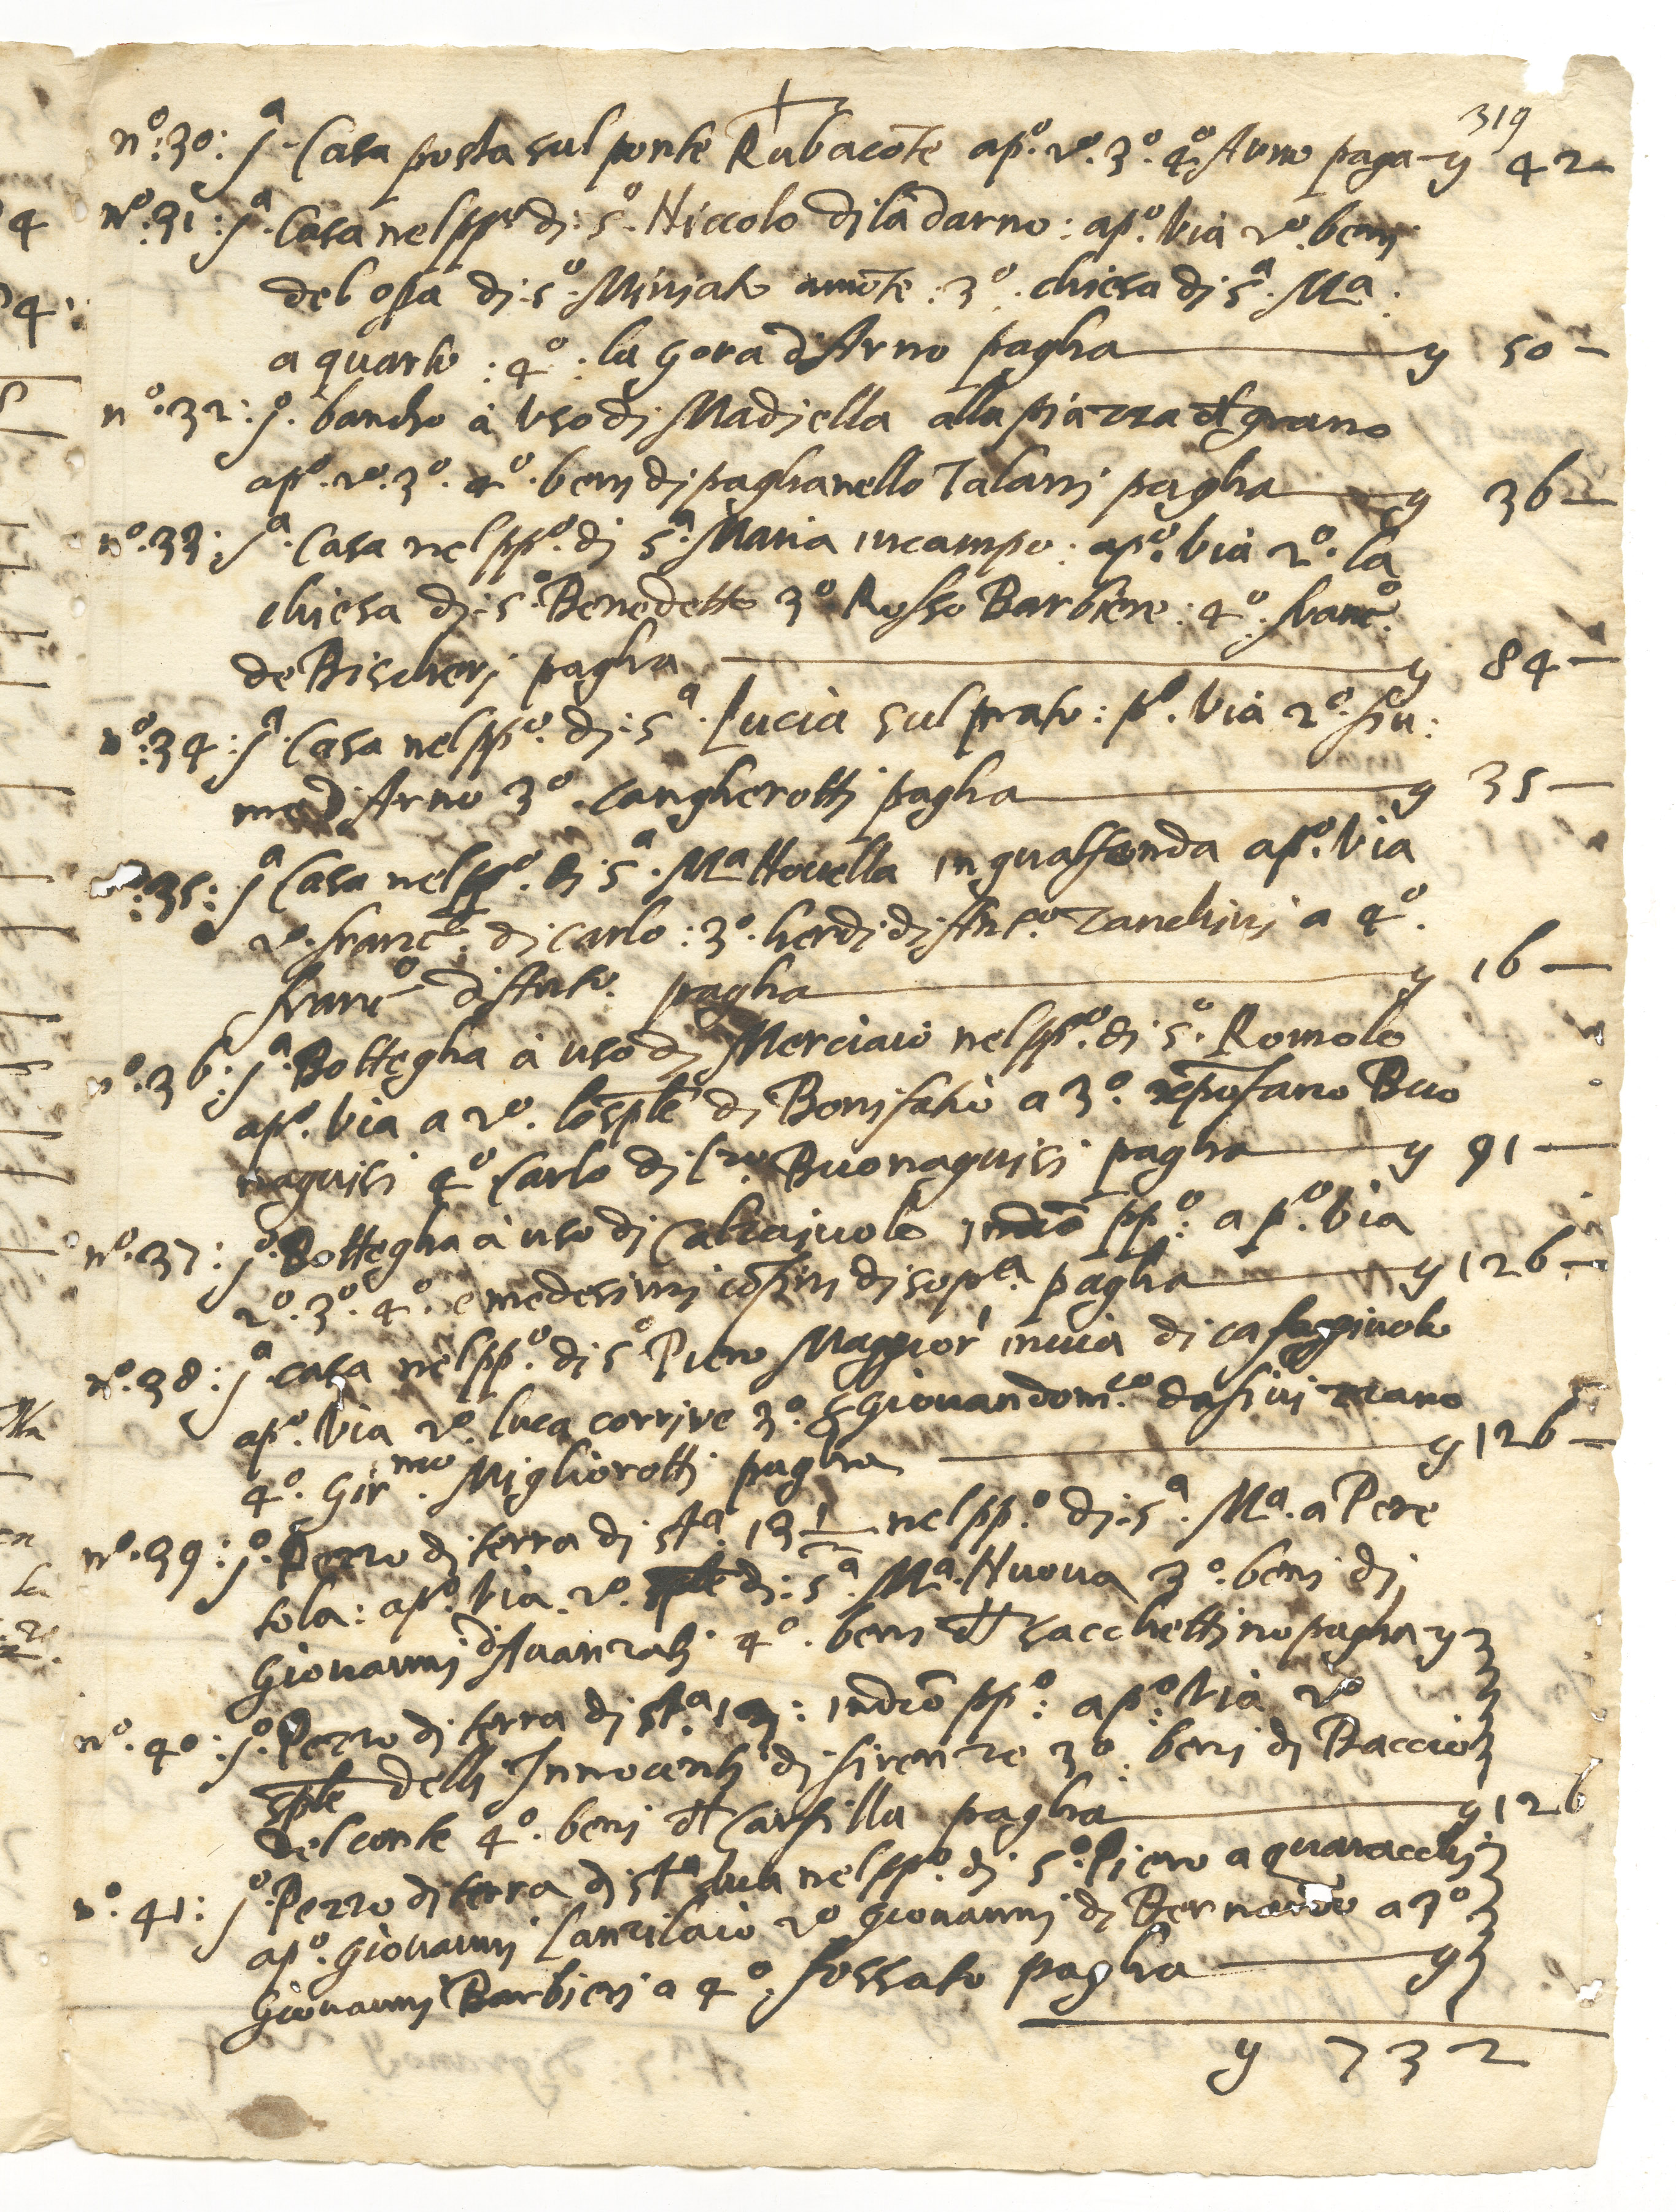 319
nº:30: jª Casa posta sul ponte Rubacōte apº. 2º. 3º. 4º Arno paga y 42
nº:31: jª. Casa nel ppº di: Sº. Niccolo di la darno: apº. Via 2º. benj
del opa di Sº. Miniato amōte: 3º. chiesa di Sª. Mª:
a quarto: 4º: la gora d'Arno pagha y 50
nº.32: jº. bancho à Uso di Madiella alla piazza dl grano
apº. 2º. 3º. 4º. benj dj paghanello Talanj pagha y 36
nº.33: jª. Casa nel ppº. dj Sª. Maria in campo: apº. Via 2º. la
chiesa dj: Sº. Benedetto 3º. Rosso Barbiere: 4º. franº.
de Bischerj pagha y 84
nº:34: jª. Casa nel ppº. dj: Sª. Lucia sul prato: pº. Via 2º. fiu:
me d'Arno 3º. cangherottj pagha y 35
nº:35: jª Casa nel ppº. di Sª. Mª Novella in gualfonda apº. Via
2º. francº. di Carlo: 3º. heredi di Ancº. Zanchinj a 4º.
francº d'Antº. pagha y 16
nº.36: jª. Bottegha à uso dj Merciaio nel ppº. di Sº. Romolo
apº. Via a 2º. lo sple di Bonifatio a 3º. Buo
naguisi 4º. Carlo di Buonaguisi pagha y 91
nº.37: jª. Bottegha à uso di Calzaiuolo indcō ppº: a pº. Via
2º. 3º. 4º. e medesimj cōfinj di sopra pagha y 126
nº.38: jª. casa nel ppº. di Sº Piero Maggior' in via di cafaggiuolo
apº. Via 2º. luca corrjve 3º. S Giovandomco. da fivizzano
4º. Girmo. Migliorottj pagha y 126
nº.39: jº. Pezzo dj terra di stª. 13 1/2 nel ppº. dj: Sª. Mª. a Pere
tola: apº. Via. 2º. sple dj: Sª. Mª. Nuova 3º. benj dj
Giovannj d'Avanzatj 4º. benj dl sacchettino pagha y
nº.40: jº. Pezzo dj terra di stª. 13: indcō ppº: apº. Via 2º
sple dellj Innocentj dj firenze 3º. benj dj Baccio
del conte 4º. benj dl Carfilla pagha y 126
nº.41: jº. Pezzo dj terra dj stª nel ppº. dj Sº. Piero a quaracchj
apº. Giovannj Lanzilaio 2º Giovannj dj Bernardo a 3º
Giovannj Barbierj a 4º. fossato pagha y
y 732